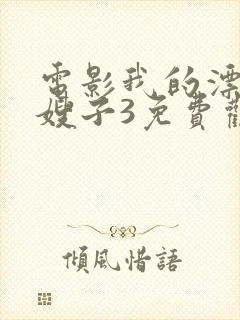 電影我的漂
嫂子3免費
傾風惜語